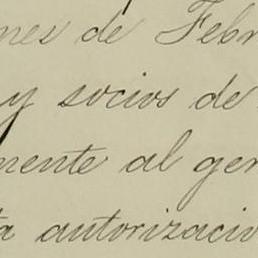 nes de Febr
y socios de
mente al ger
ta autorizacio